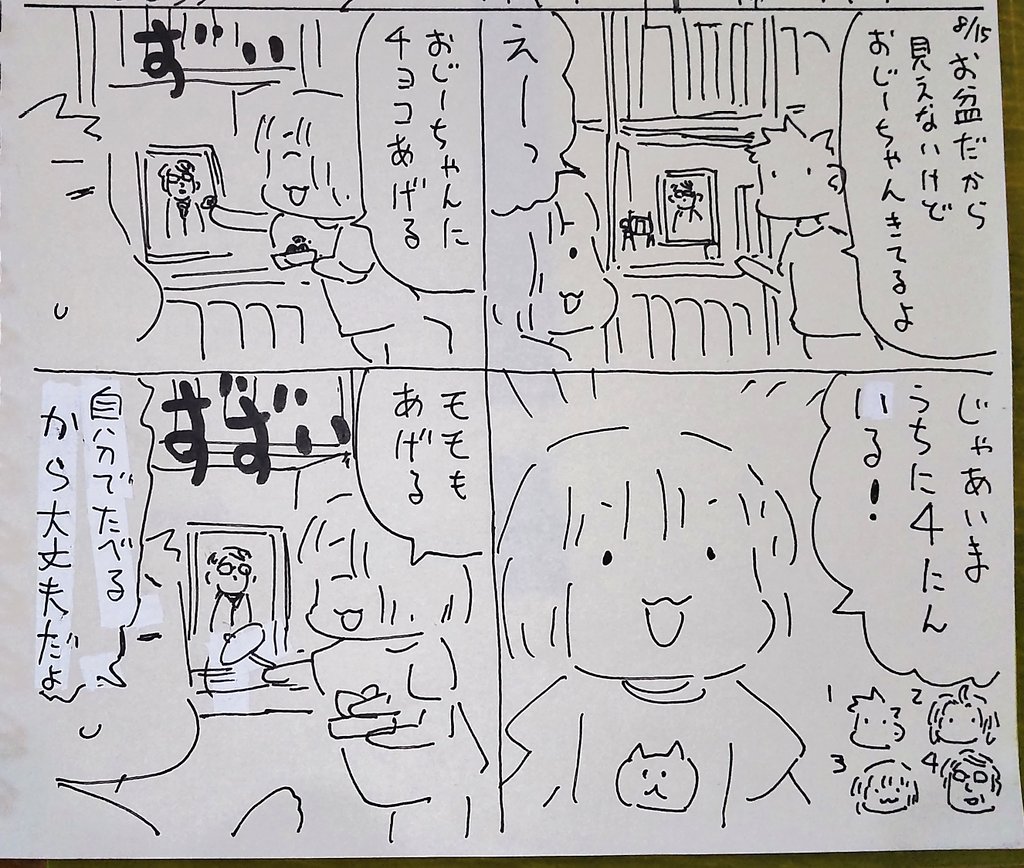 8/15
お盆だから
見えないけど
おじーちゃんきてるよ
えーっ
じゃあいま
うちに4にん
いる!
1
2
3
4
おじーちゃんに
チョコあげる
ずい
モモも
あげる
ずずい
自分でたべる
から大丈夫だよ